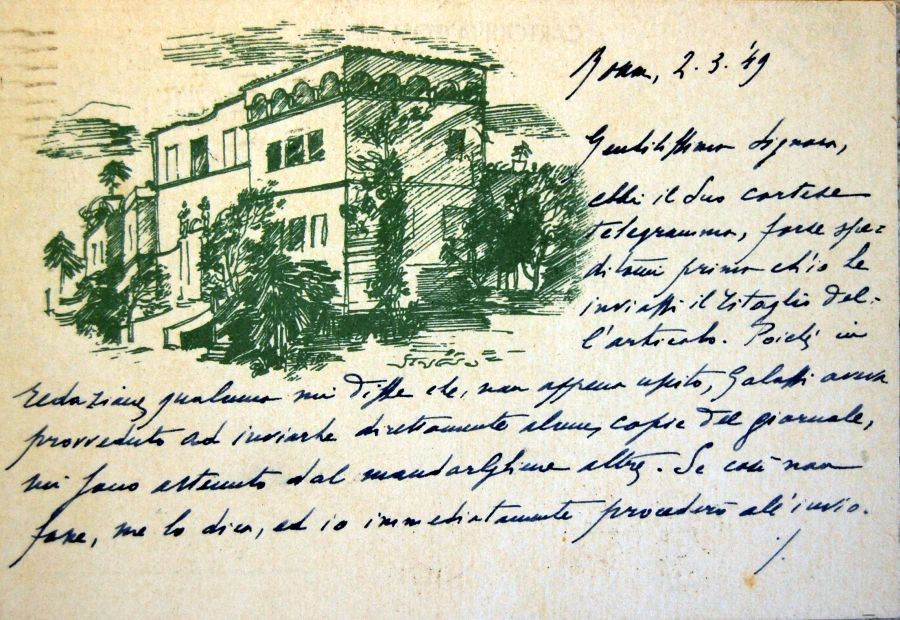 Roma, 2.3.'49
Gentilissima Signora,
ebbi il Suo cortese
telegramma, forse spe-
ditomi prima ch'io Le
inviassi il ritaglio del-
l'articolo. Poichè in
redazione qualcuno mi disse che, non appena uscito, Galassi aveva
provveduto ad inviarle direttamente alcune copie del giornale,
mi sono astenuto dal mandargliene altre. Se così non
fosse, me lo dica, ed io immediatamente procederò all'invio.